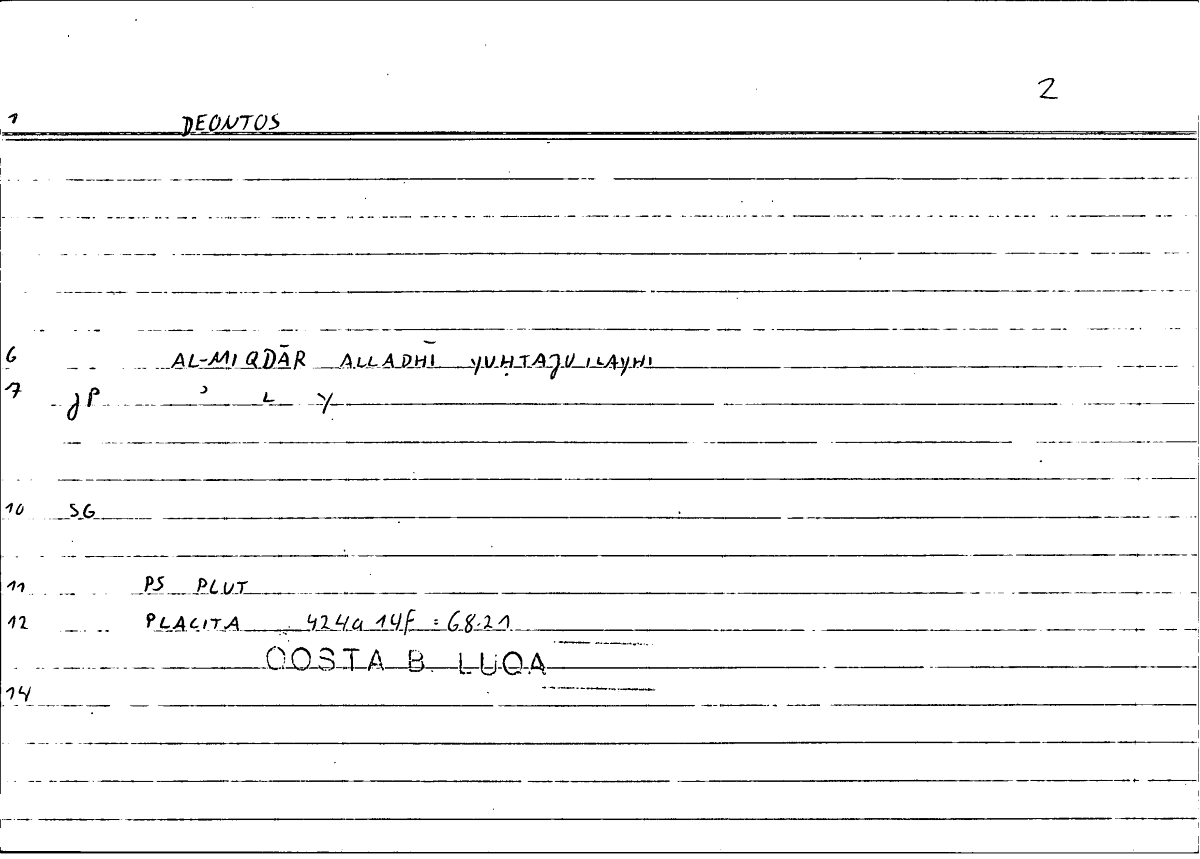 2
1 DEONTOS
6 AL-MIQDĀR ALLADHĪ YUḤTAJU ILAYHI
7 JP ʾ L Y
10 SG
11 PS PLUT
12 PLACITA 424a 14f = 68.21
QOSTA B. LUQA
14